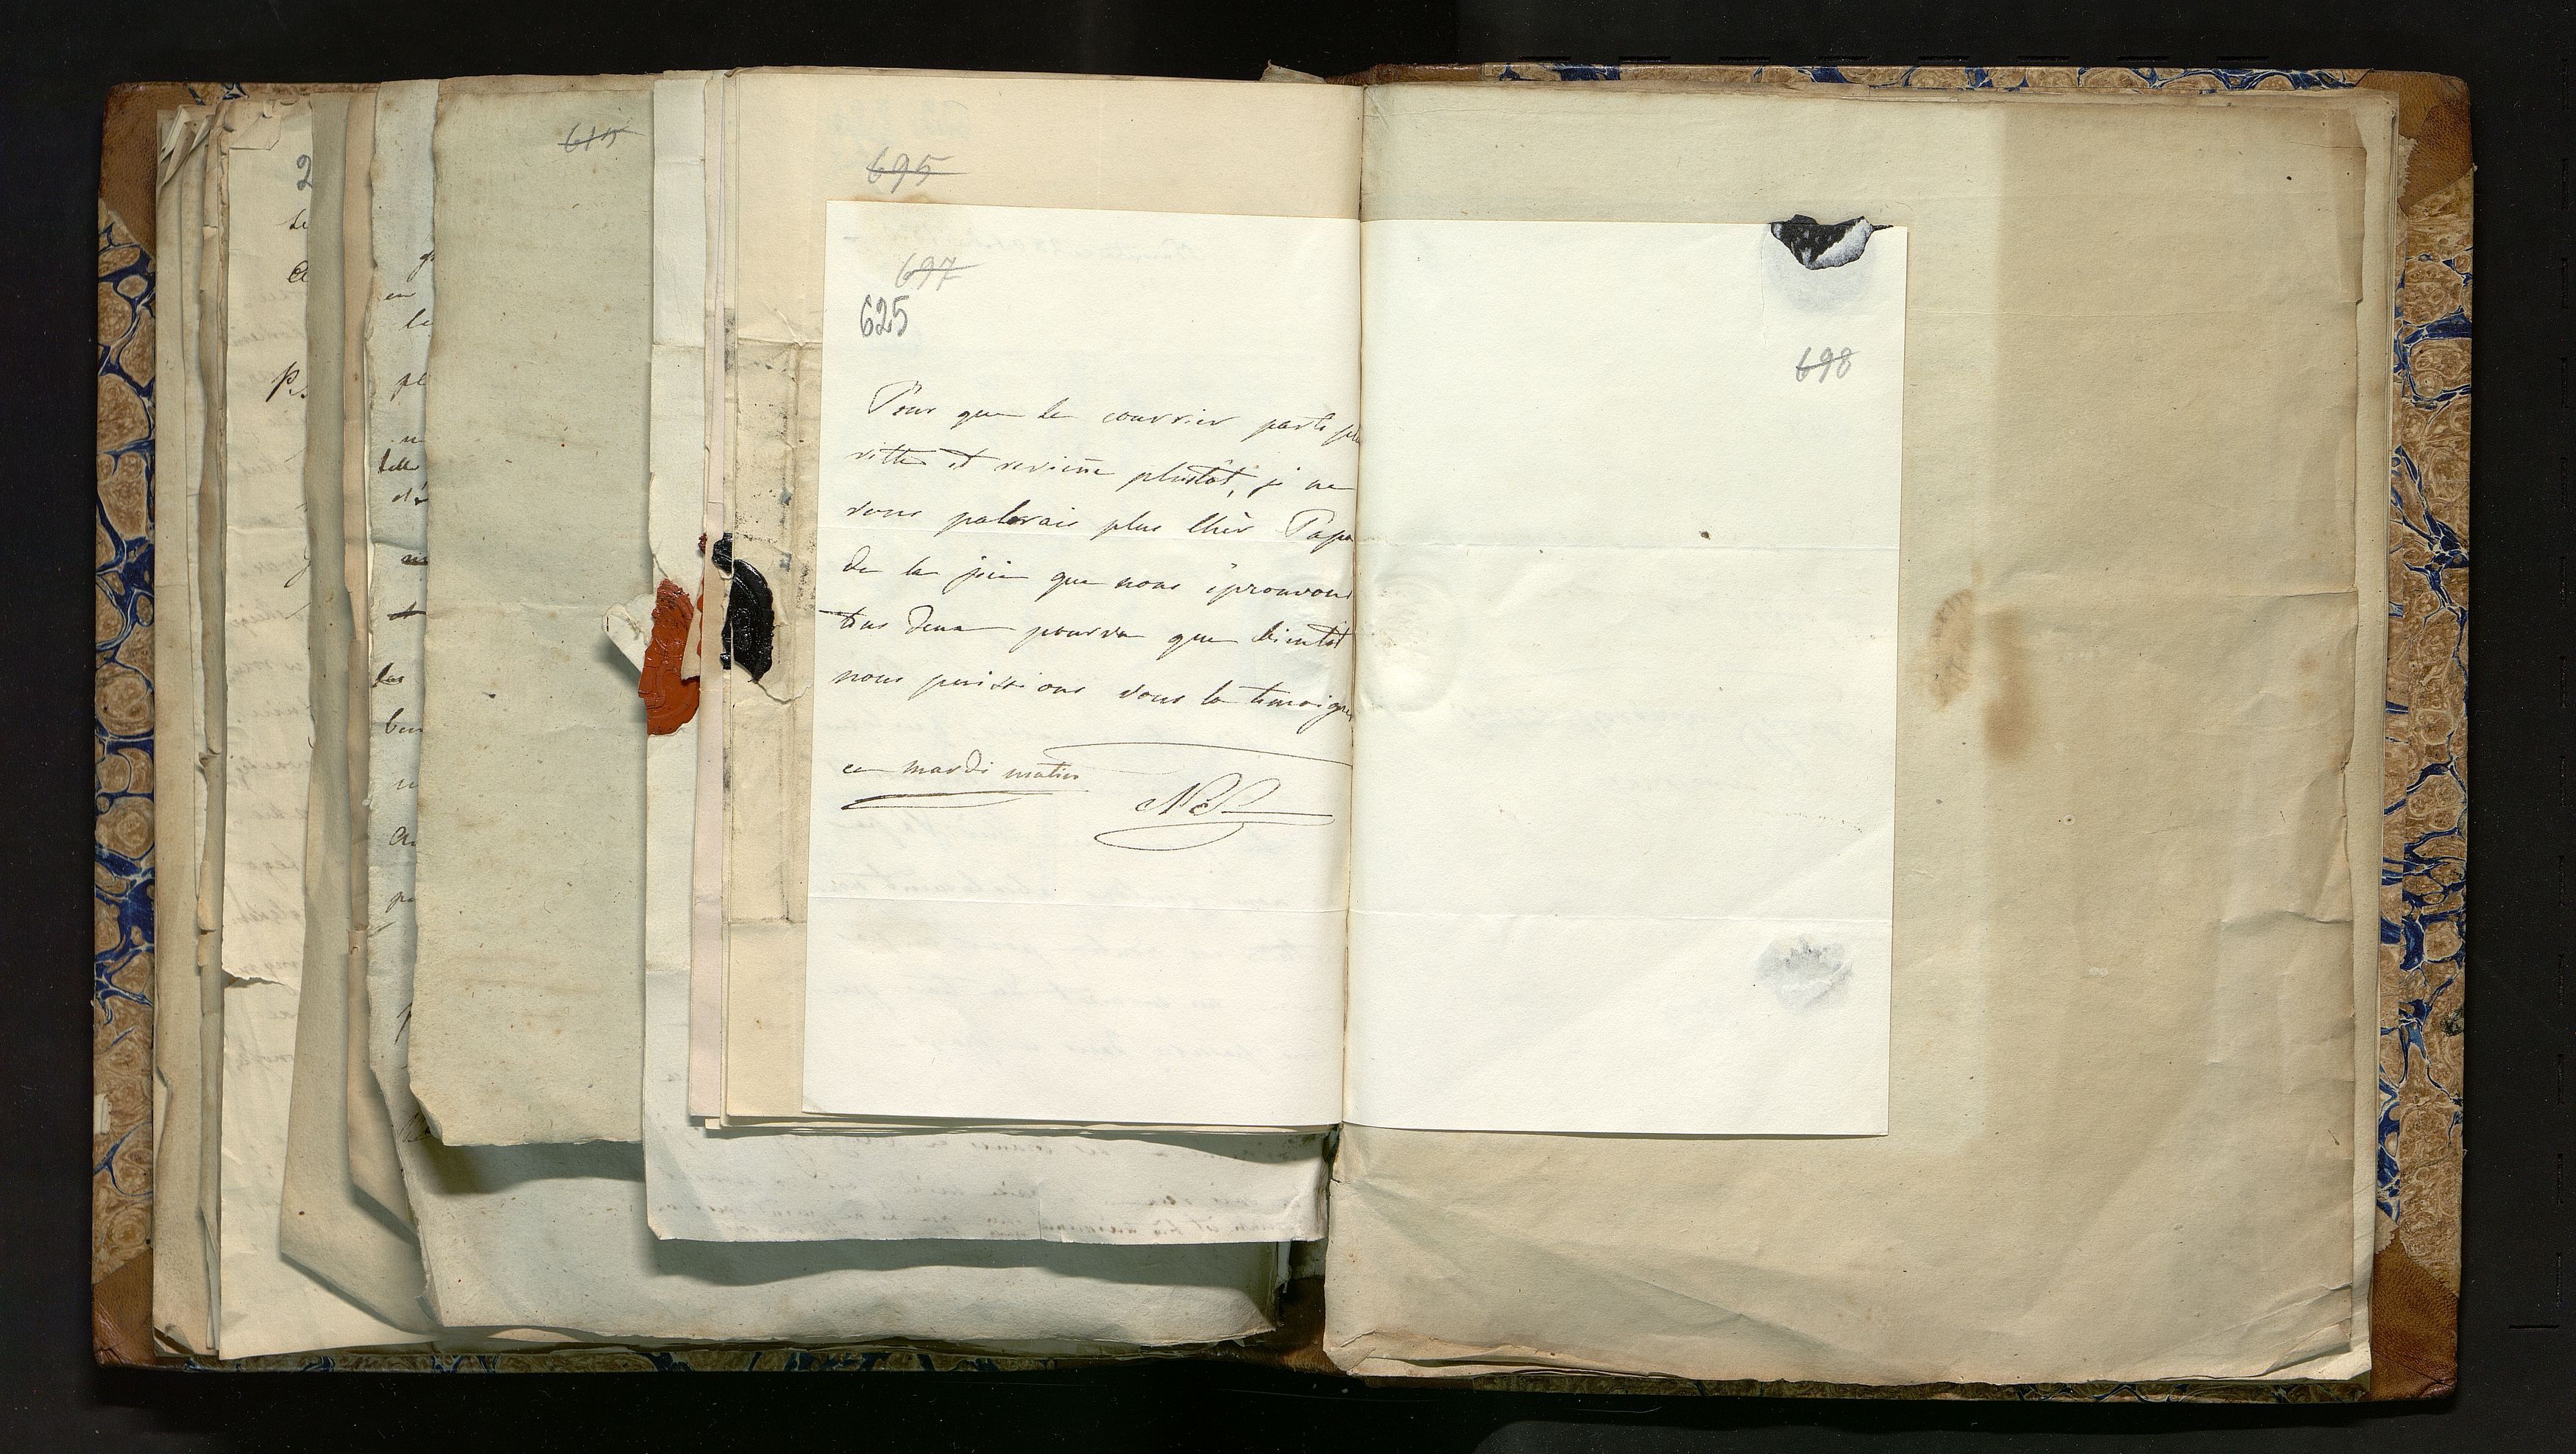 615
695
697
625
698
Pour que le courrier parte plu
vitte et revienne plustôt, je ne
vous palerais plus Chèr Papa
de la joie que nous éprouvons
tous deux pourvu que bientôt
nous puissions vous la temoigner
ce mardi matin